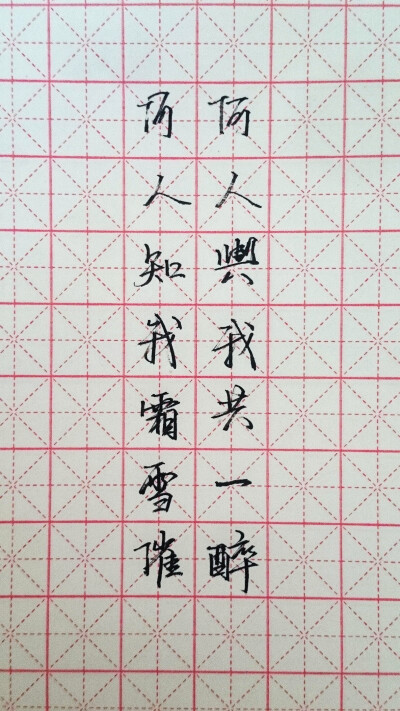 何人與我共一醉
何人知我霜雪摧